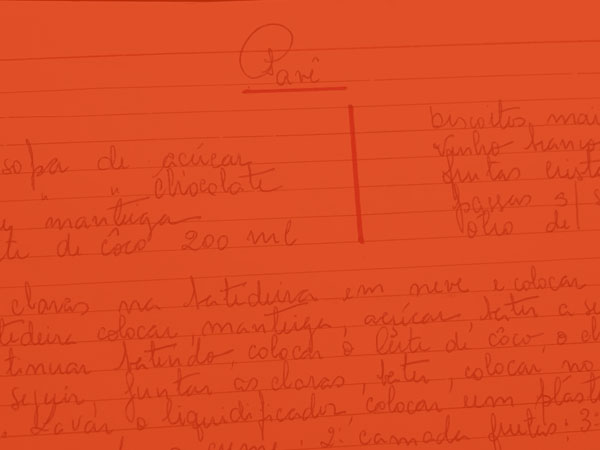 Pavê
sopa de açúcar
" " chocolate
manteiga
de côco 200 ml
biscoitos, mai
vinho branco
frutas crista
passas s/ s
olho de
claras na batedeira em neve e colocar
tedeira colocar, manteiga, açúcar, bater a se
tinuar batendo, colocar o leite de côco, o ch
seguir, juntar as claras, bater, colocar no
Lavar o liquidificador, colocar num plást
creme; 2ª camada frutas; 3ª